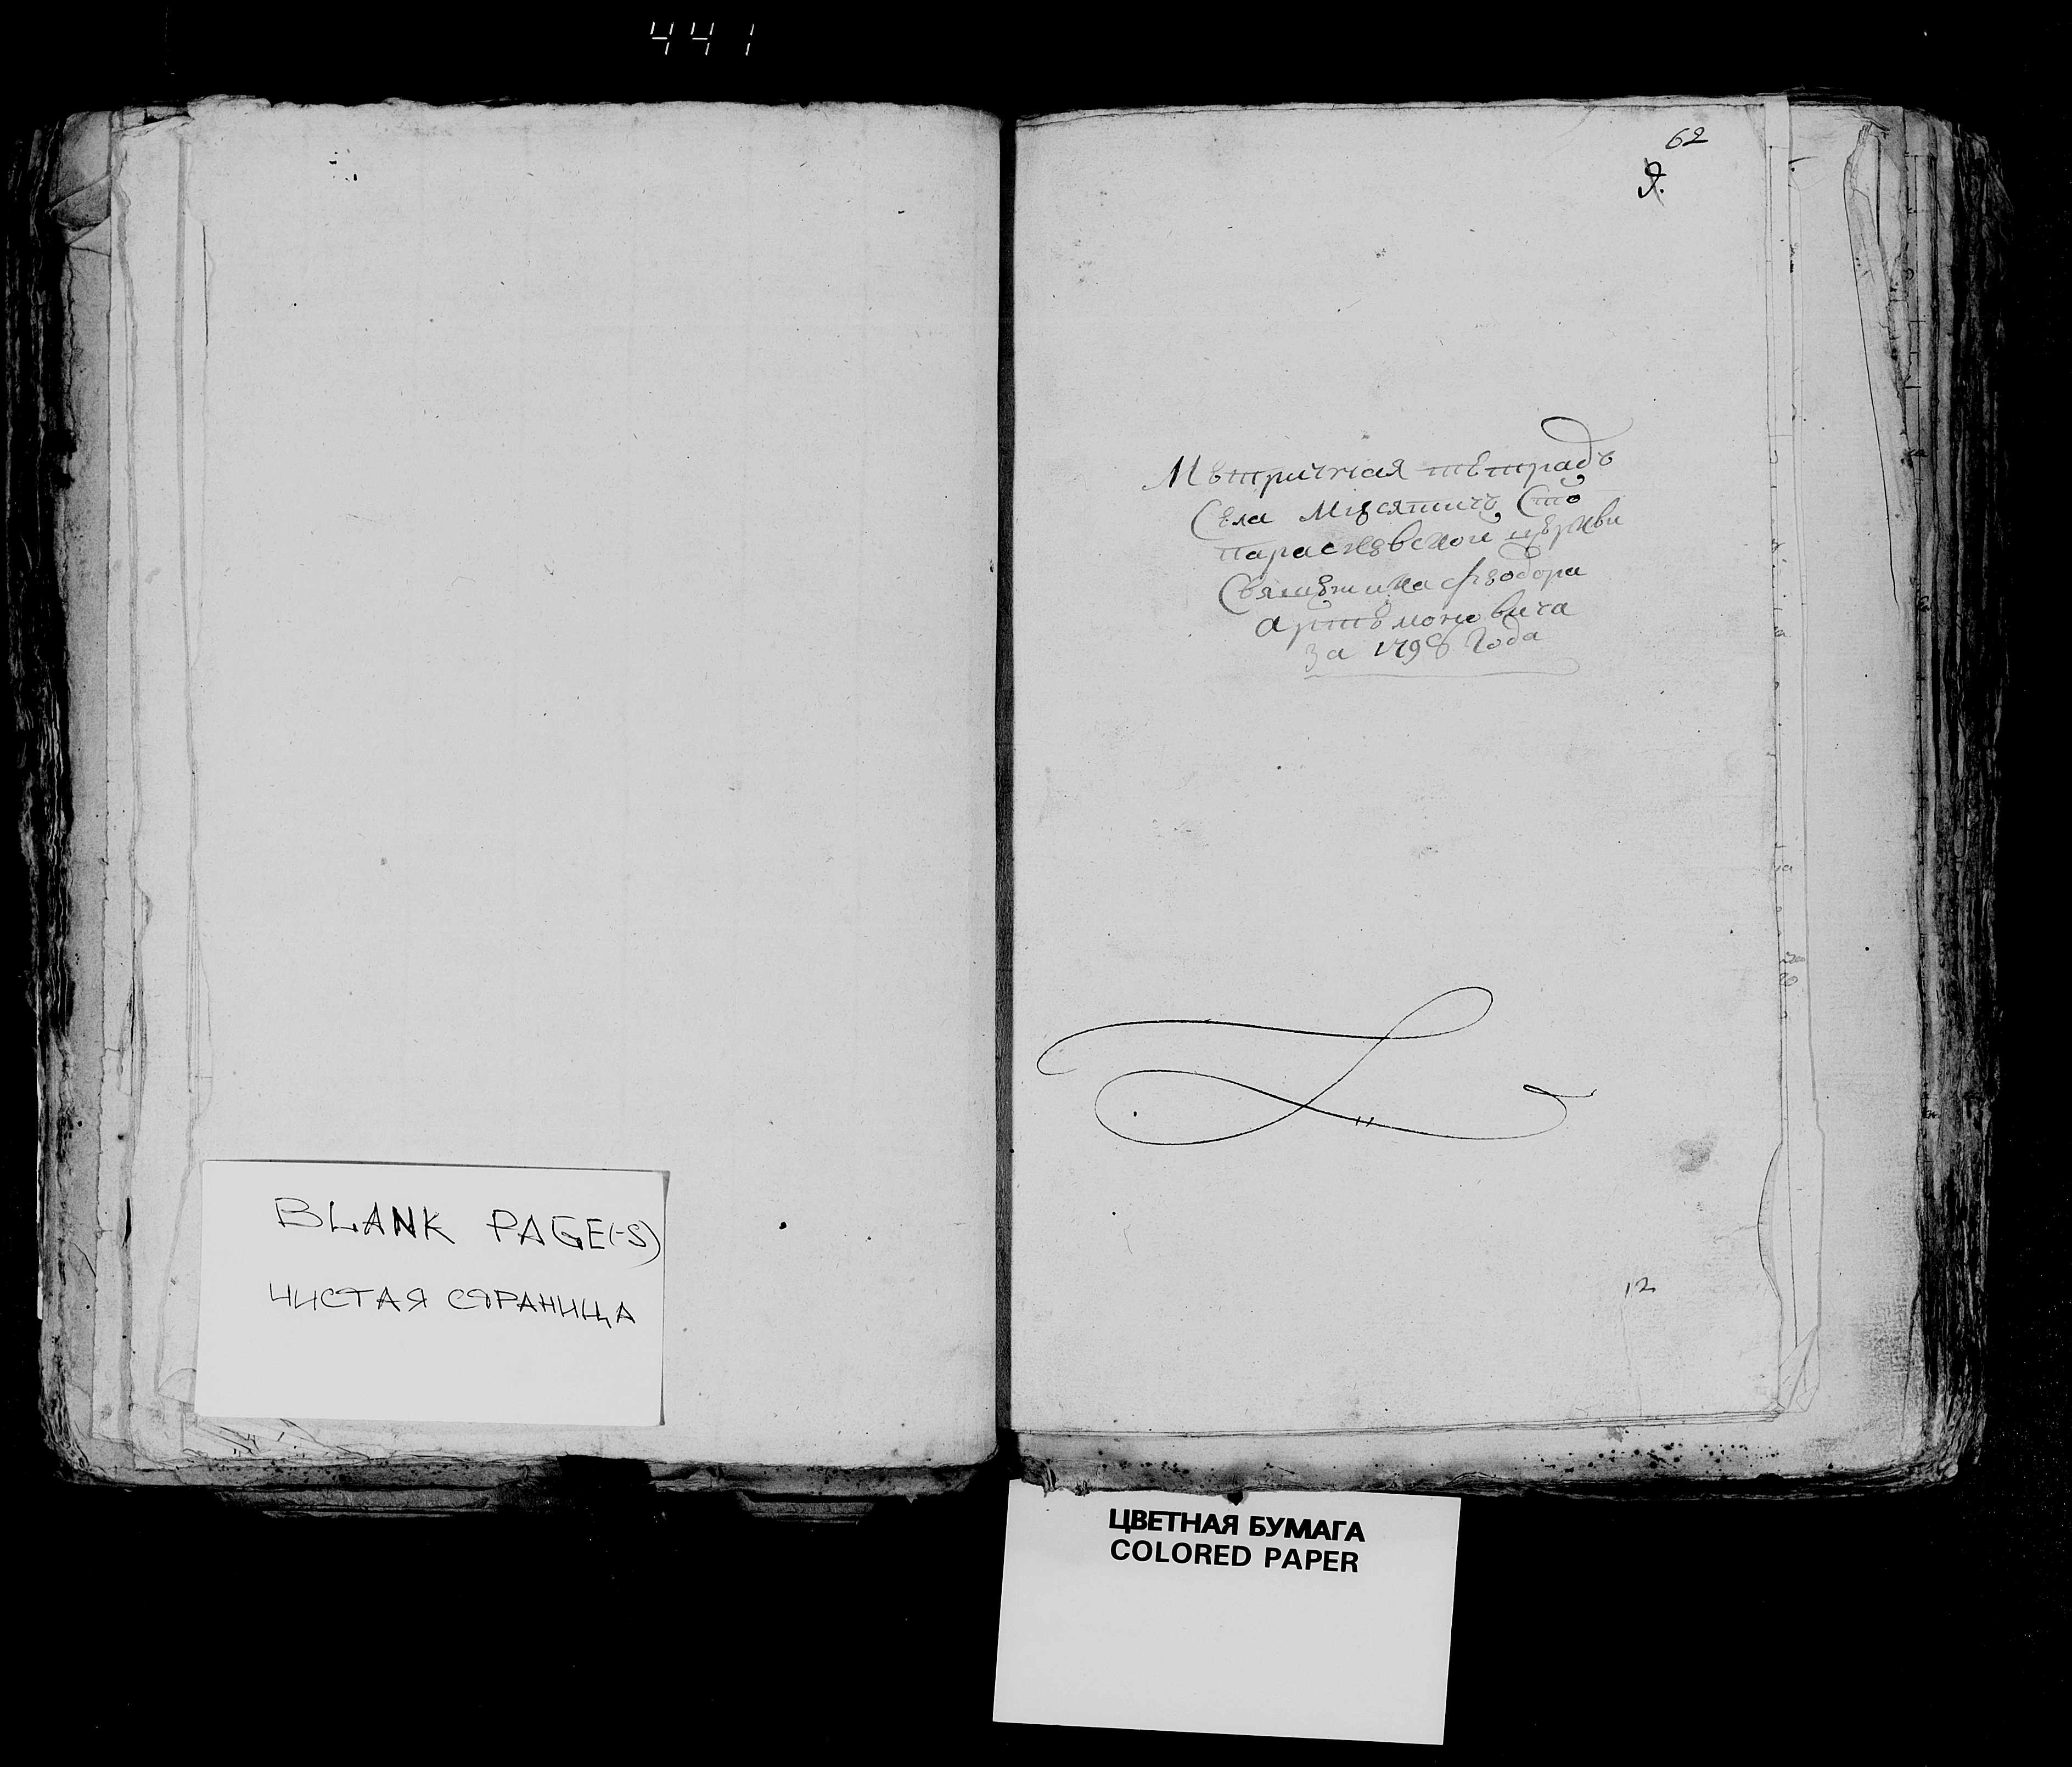 441
BLANK PAGE(-S)
ЧИСТАЯ СТРАНИЦА
62
9.
Метричная тетрадь
Села Мизятичъ Сто
параскевской церкви
Священника Феодора
Артемоновича
За 1798 Года
12
ЦВЕТНАЯ БУМАГА
COLORED PAPER